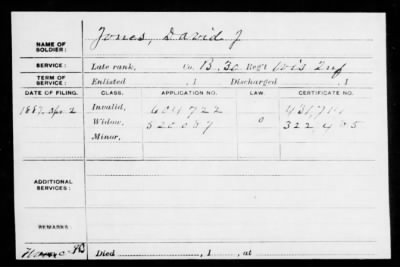 Jones, David J
NAME OF SOLDIER:
SERVICE: Late rank, Co. B. 30 Reg't Wis Inf
TERM OF SERVICE: Enlisted , 1 Discharged , 1
DATE OF FILING. CLASS. APPLICATION NO. LAW. CERTIFICATE NO.
1887. Apr. 2 Invalid, 604722
Widow, 520057 0 322,485
Minor,
ADDITIONAL SERVICES:
REMARKS:
Died , 1 , at